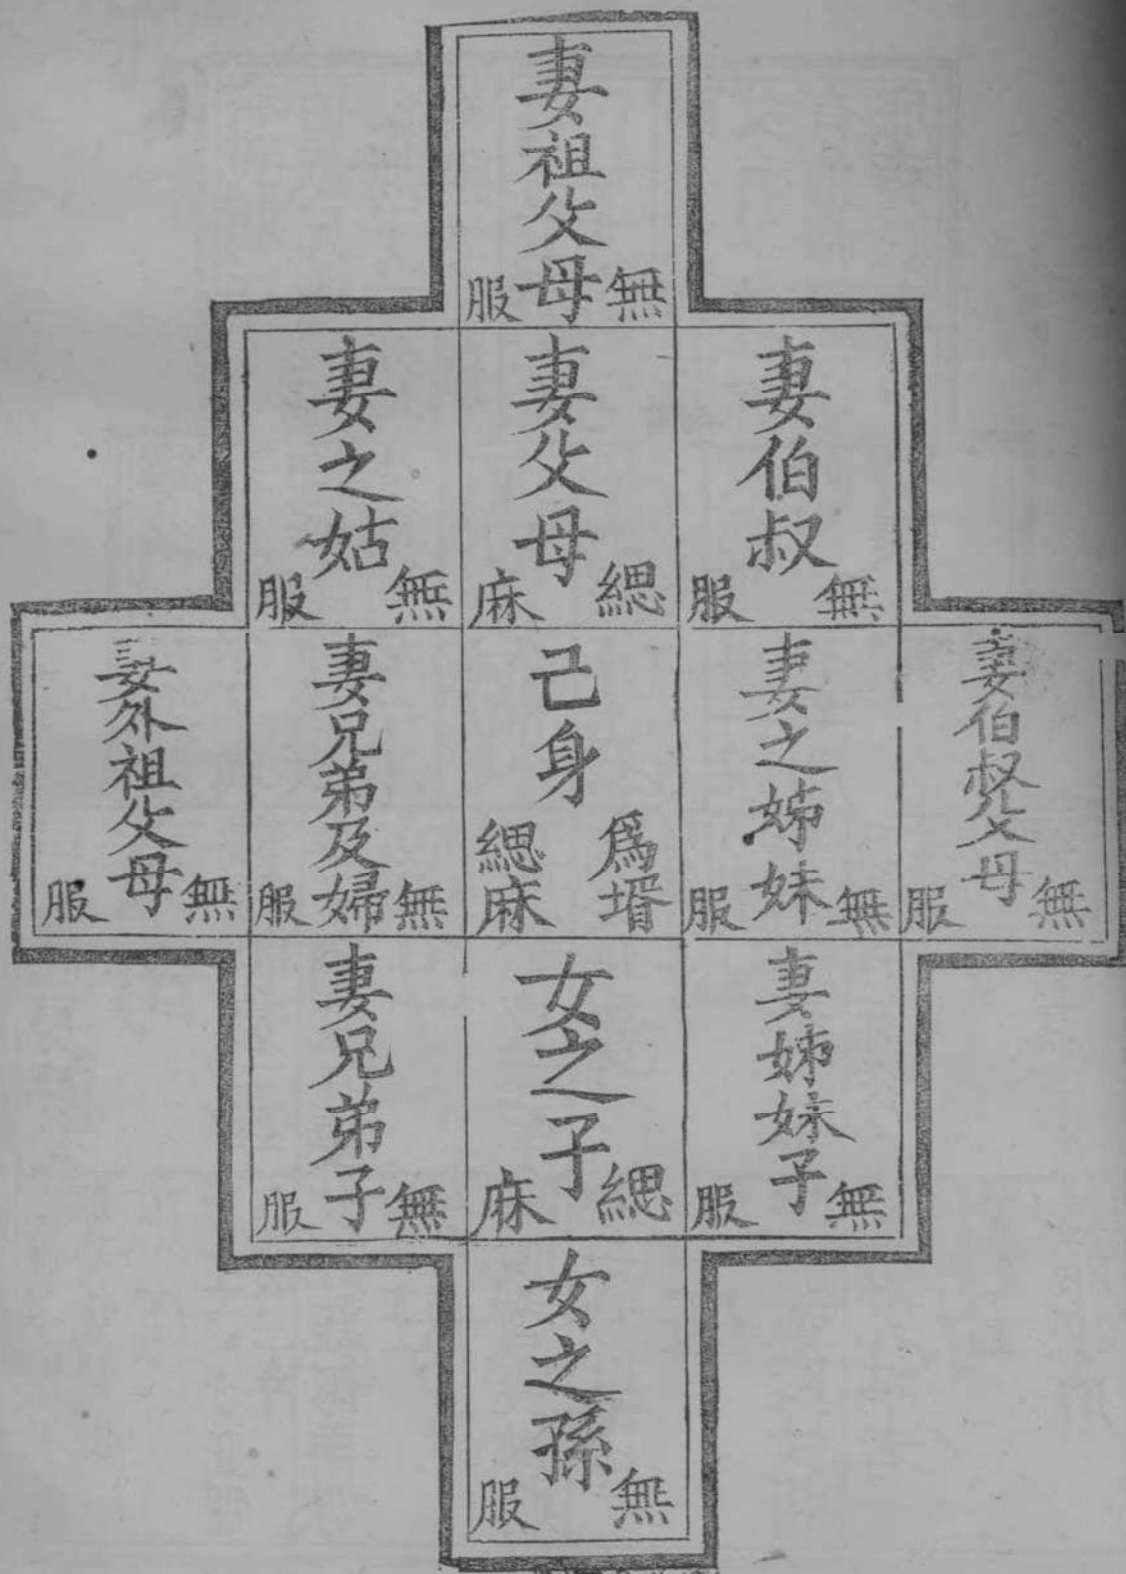 妻祖父母
無服
妻伯叔
無服
妻父母
緦麻
妻之姑
無服
妻伯叔父母
無服
妻之姊妹
無服
己身
爲壻緦麻
妻兄弟及婦
無服
妻外祖父母
無服
妻姊妹子
無服
女之子
緦麻
妻兄弟子
無服
女之孫
無服